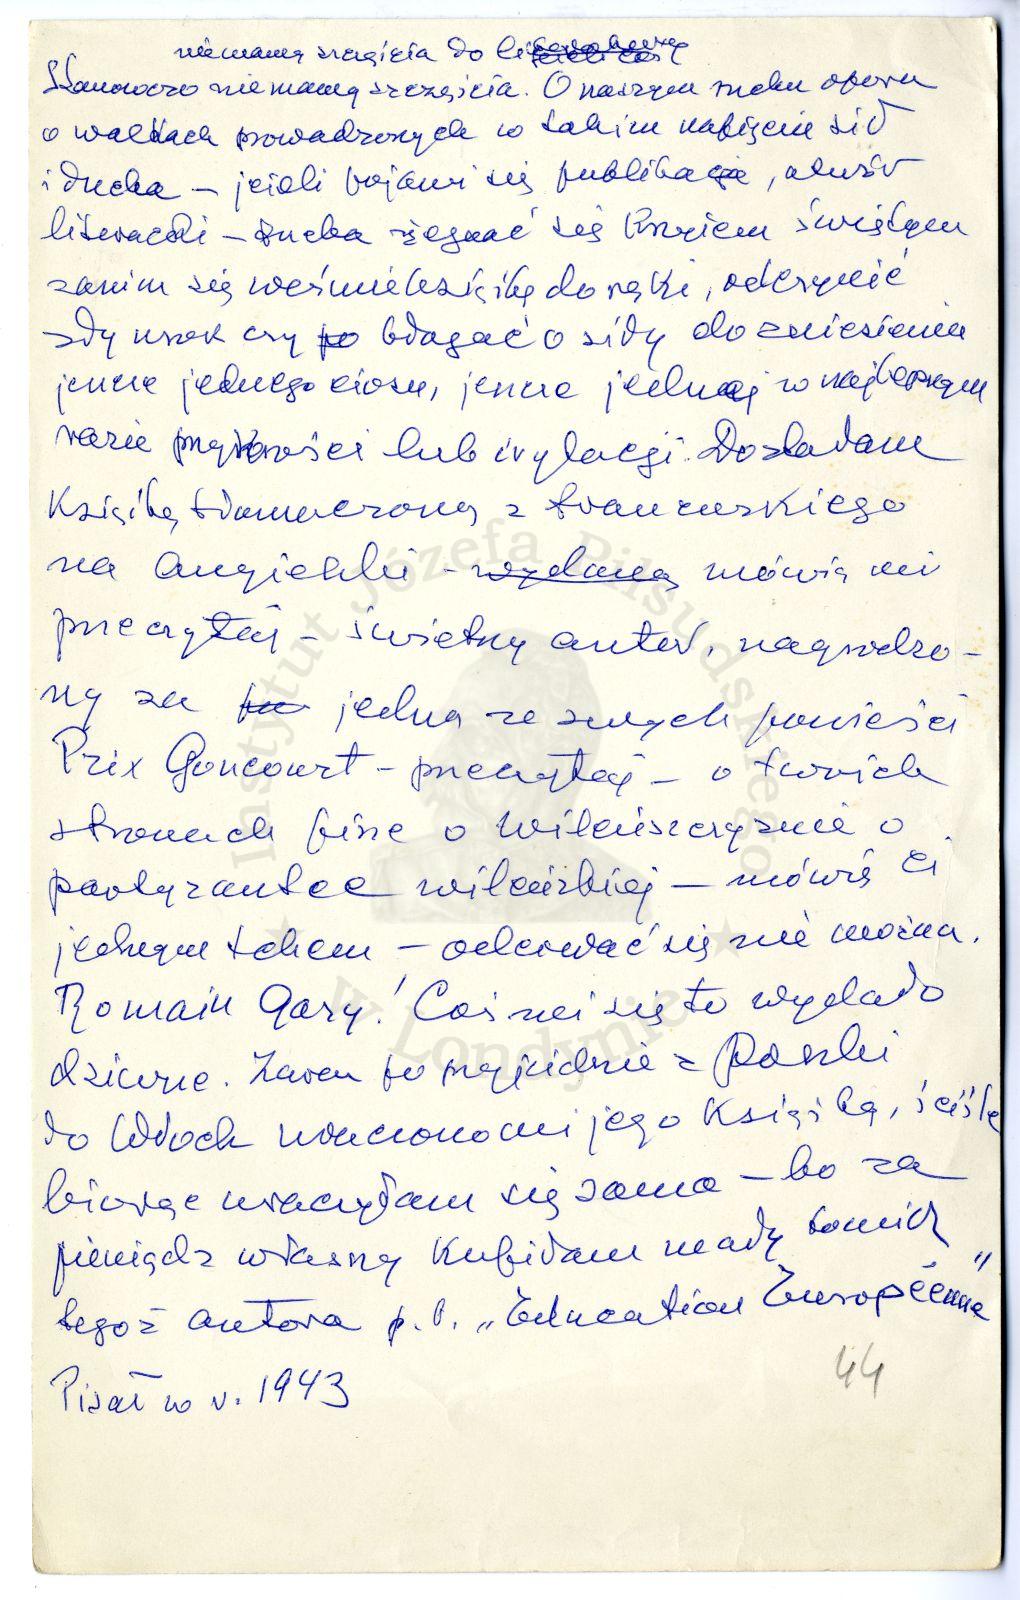 nie mamy szczęścia do
Stanowczo nie mamy szczęścia. O naszym ruchu oporu
o walkach prowadzonych w takim napięciu sił
i ducha – jeśli pojawi się publikacja, utwór
literacki – trzeba żegnać się Krzyżem świętym
zanim się weźmie książkę do ręki, odczynić
zły urok czy po błagać o siły do zniesienia
jeszcze jednego ciosu, jeszcze jednej w najlepszym
razie przykrości lub irytacji. Dostałam
Książkę tłumaczoną z francuskiego
na angielski – wydaną mówią mi
przeczytaj – świetny autor, nagrodzo-
ny za jedną ze swych powieści
Prix Goncourt – przeczytaj – o twoich
stronach pisze o Wileńszczyźnie o
partyzantce wileńskiej – mówią ci
jednym tchem – oderwać się nie można.
Romain Gary! Coś mi się to wydało
dziwne. Zaraz po przyjeździe z Polski
do Włoch uraczono mi jego Książką, ściśle
biorąc uraczyłam się sama – bo za
pieniądz własny Kupiłam mały tomik
tegoż autora p.t. „Education Européenne"
Pisał w r. 1943
44
Instytut Józefa Piłsudskiego
w Londynie